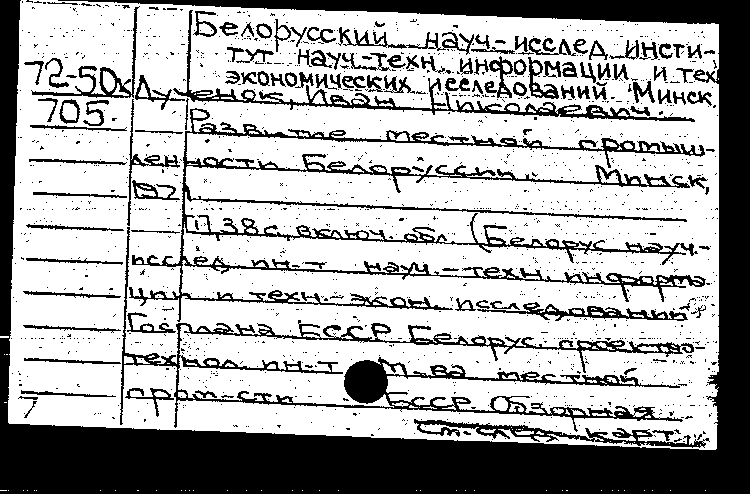 Белорусский науч-исслед инсти-
тут науч-техн. информации и тех
экономических исследований Минск
72-50к
705.
Лученок, Иван Николаевич.
Развитие местной промыш-
ленности Белоруссии. Минск,
1971.
38 с. включ. обл. (Белорус науч.-
исслед. ин-т науч.-техн. информа
ции и техн.-экон. исследований
Госплана БССР Белорус. проектно-
технол. ин-т М-ва местной
пром-сти БССР. Обзорная
См. след. карт.
7